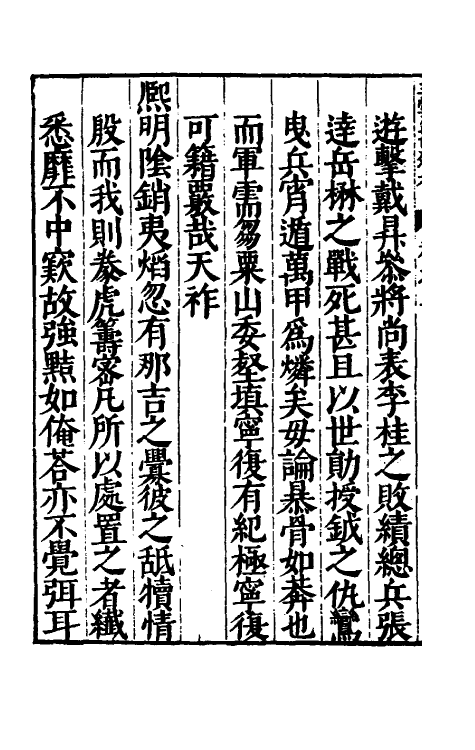 遊擊戴昇叅將尚表李桂之敗績總兵張
達岳楙之戰死甚且以世勛授鉞之仇鸞
曳兵宵遁萬甲爲燐矣毋論暴骨如莽也
而軍需芻粟山委壑填寧復有紀極寧復
可籍覈哉天祚
熈明陰銷夷熖忽有那吉之釁彼之舐犢情
殷而我則豢虎籌密凡所以處置之者纖
悉靡不中窾故強黠如俺荅亦不覺弭耳